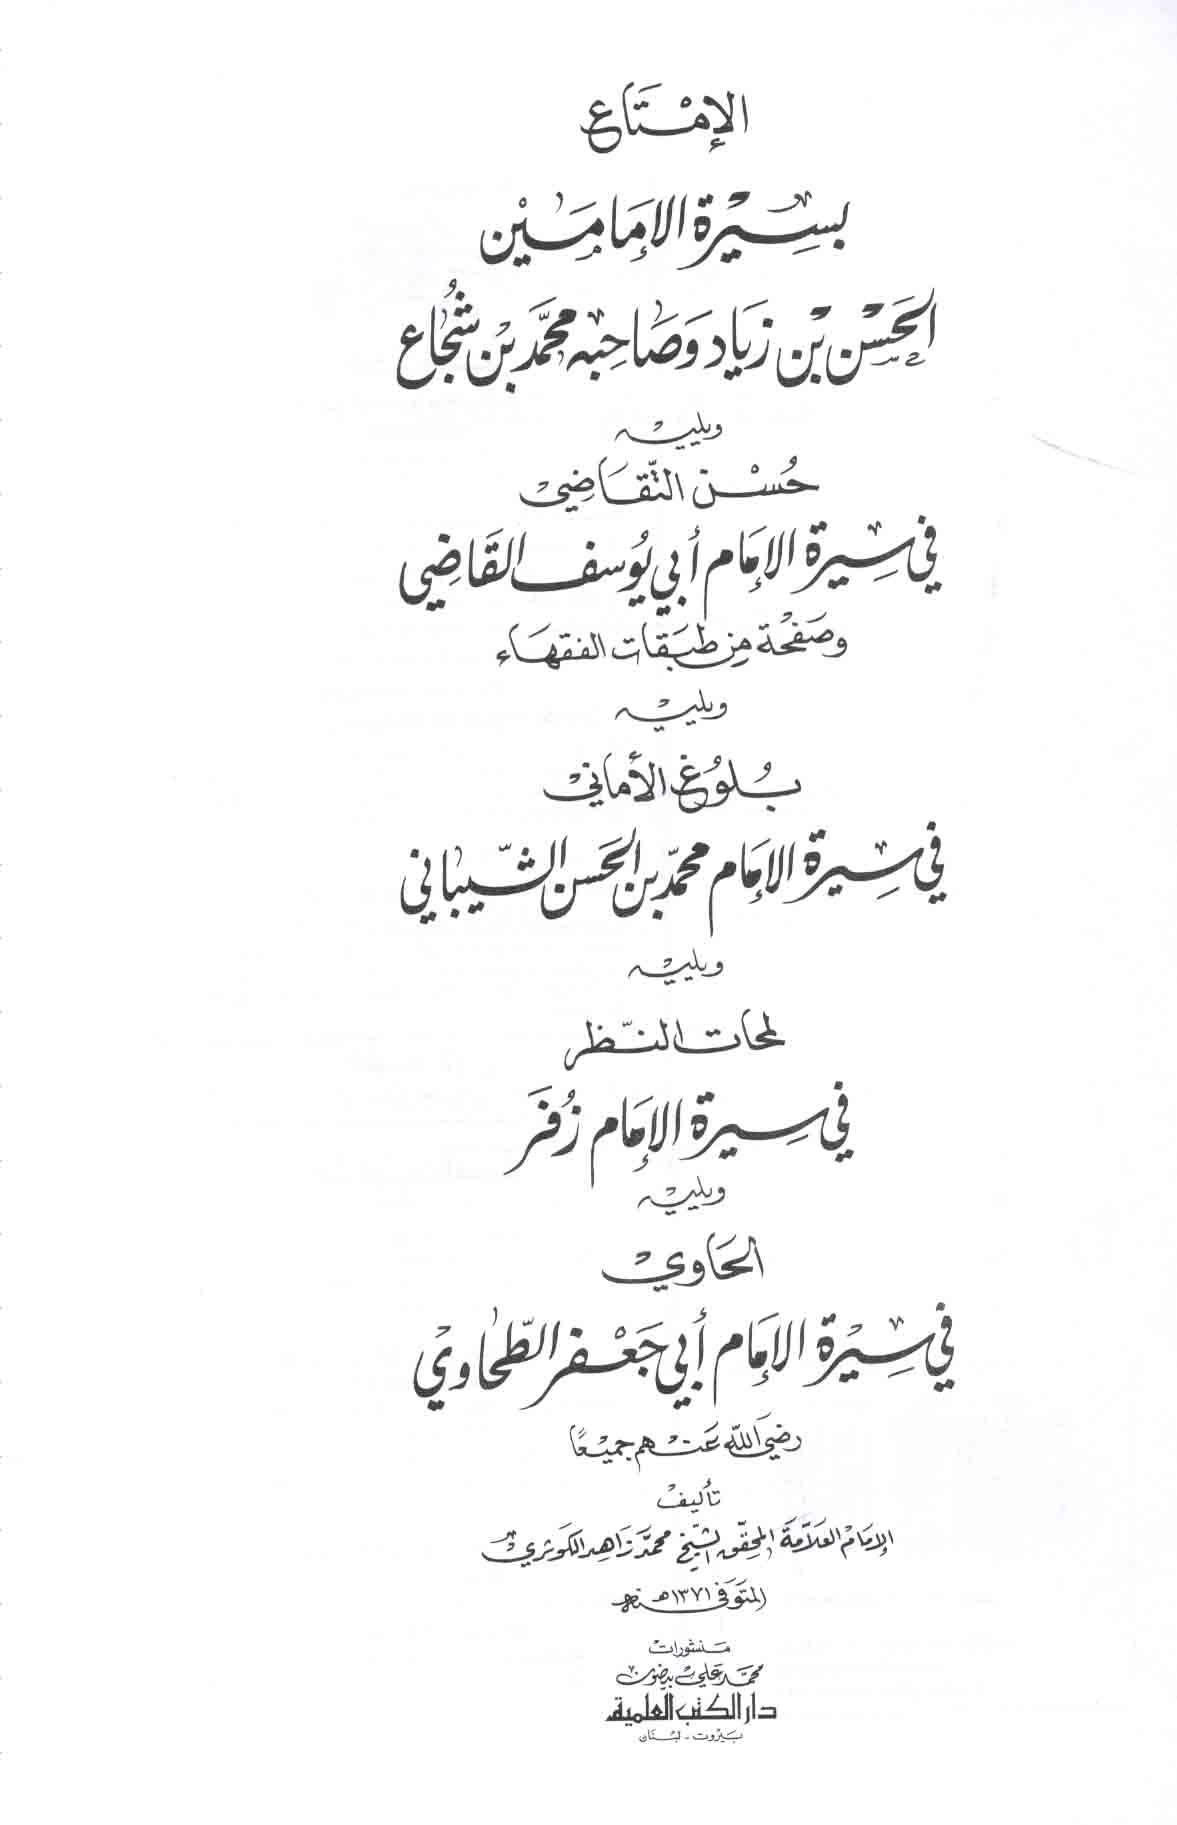 الإمتاع
بسيرة الإمامين
الحسن بن زياد وصاحبه محمد بن شجاع
ويليه
حسن التقاضي
في سيرة الإمام أبي يوسف القاضي
وصفحة من طبقات الفقهاء
ويليه
بلوغ الأماني
في سيرة الإمام محمد بن الحسن الشيباني
ويليه
لمحات النظر
في سيرة الإمام زفر
ويليه
الحاوي
في سيرة الإمام أبي جعفر الطحاوي
رضي الله عنهم جميعا
تأليف
الإمام العلامة المحقق الشيخ محمد زاهد الكوثري
المتوفى ١٣٧١هـ سنة
منشورات
محمد علي بيضون
دار الكتب العلمية
بيروت - لبنان